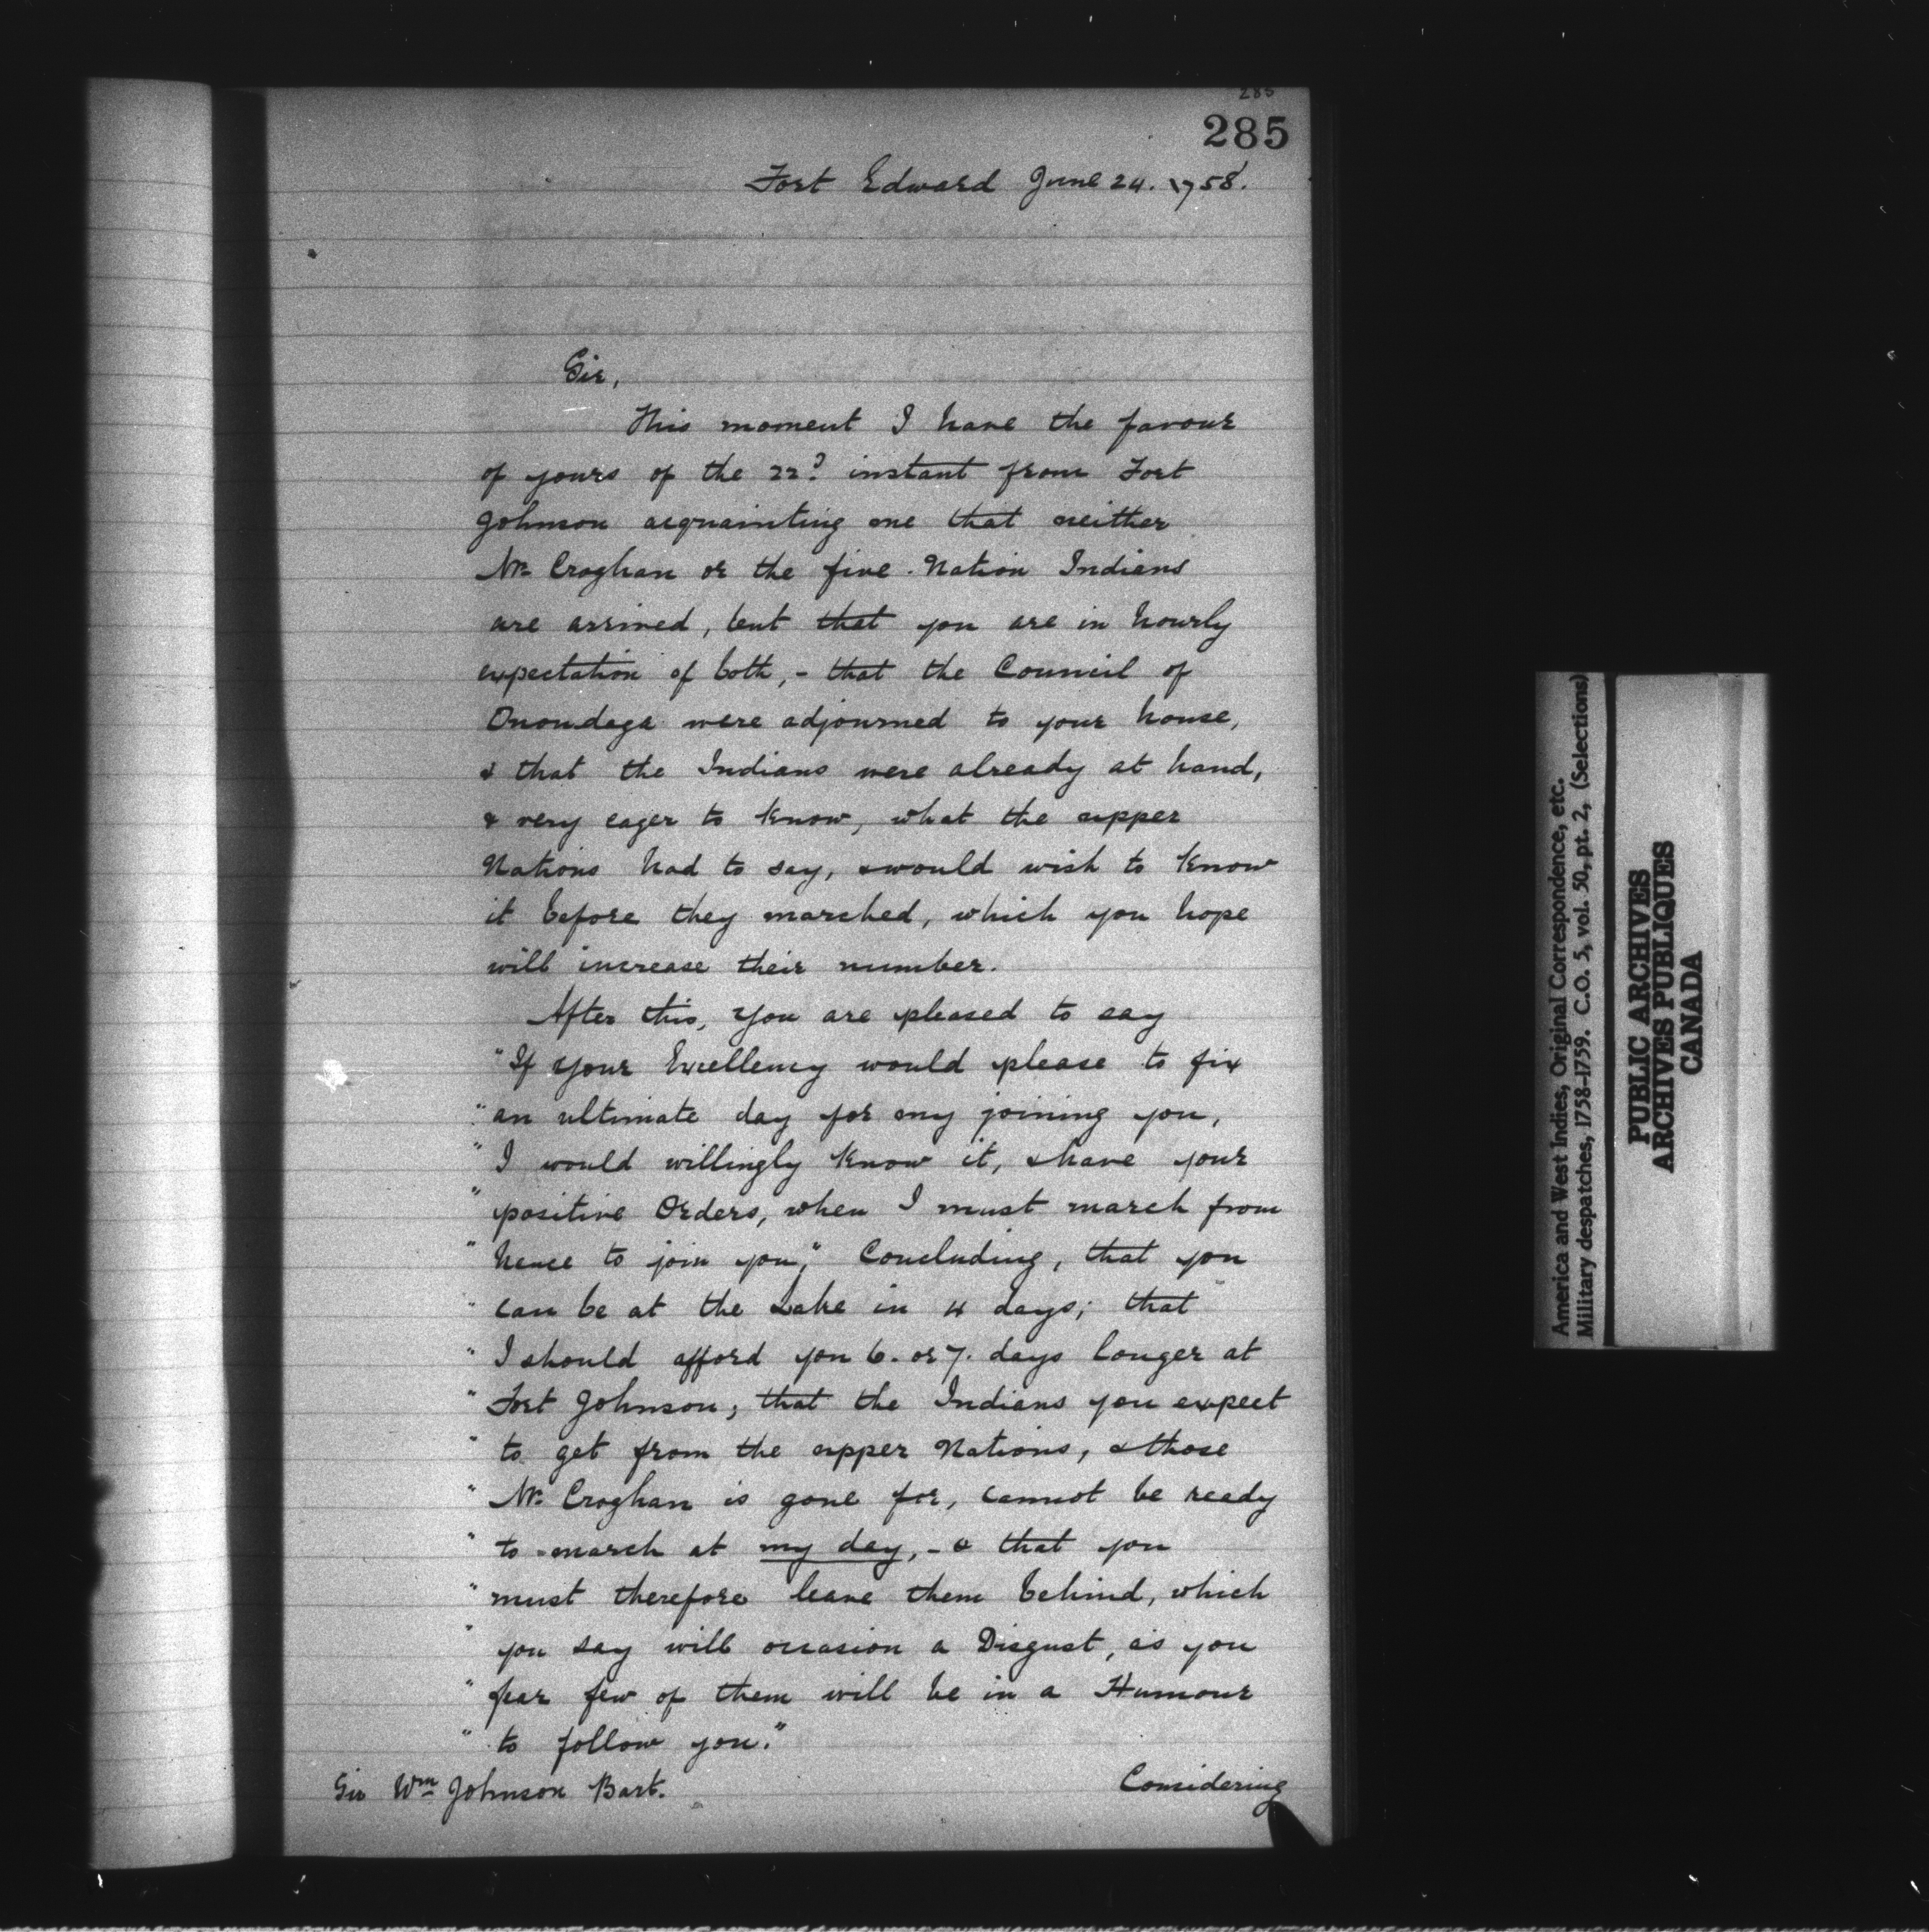 285
285
Fort Edward June 24. 1758.
Sir,
This moment I have the favour
of yours of the 22d instant from Fort
Johnson acquainting me that neither
Mr Croghan or the five Nation Indians
are arrived, but that you are in hourly
expectation of both, - that the Council of
Onondaga were adjourned to your house,
& that the Indians were already at hand,
& very eager to know, what the upper
Nations had to say, & would wish to know
it before they marched, which you hope
will increase their number.
After this, you are pleased to say
"If your Excellency would please to fix
"an ultimate day for my joining you,
"I would willingly know it, & have your
"positive Orders, when I must march from
"hence to join you," Concluding, that you
"can be at the Lake in 4 days; that
"I should afford you 6. or 7. days longer at
"Fort Johnson; that the Indians you expect
"to get from the upper Nations, & those
"Mr Croghan is gone for, cannot be ready
"to march at my day, - & that you
"must therefore leave them behind, which
"you say will occasion a Disgust, as you
"fear few of them will be in a Humour
"to follow you."
Sir Wm Johnson Bart.
Considering
America and West Indies, Original Correspondence, etc.
Military despatches, 1758-1759. C.O. 5, vol. 50, pt. 2, (Selections)
PUBLIC ARCHIVES
ARCHIVES PUBLIQUES
CANADA